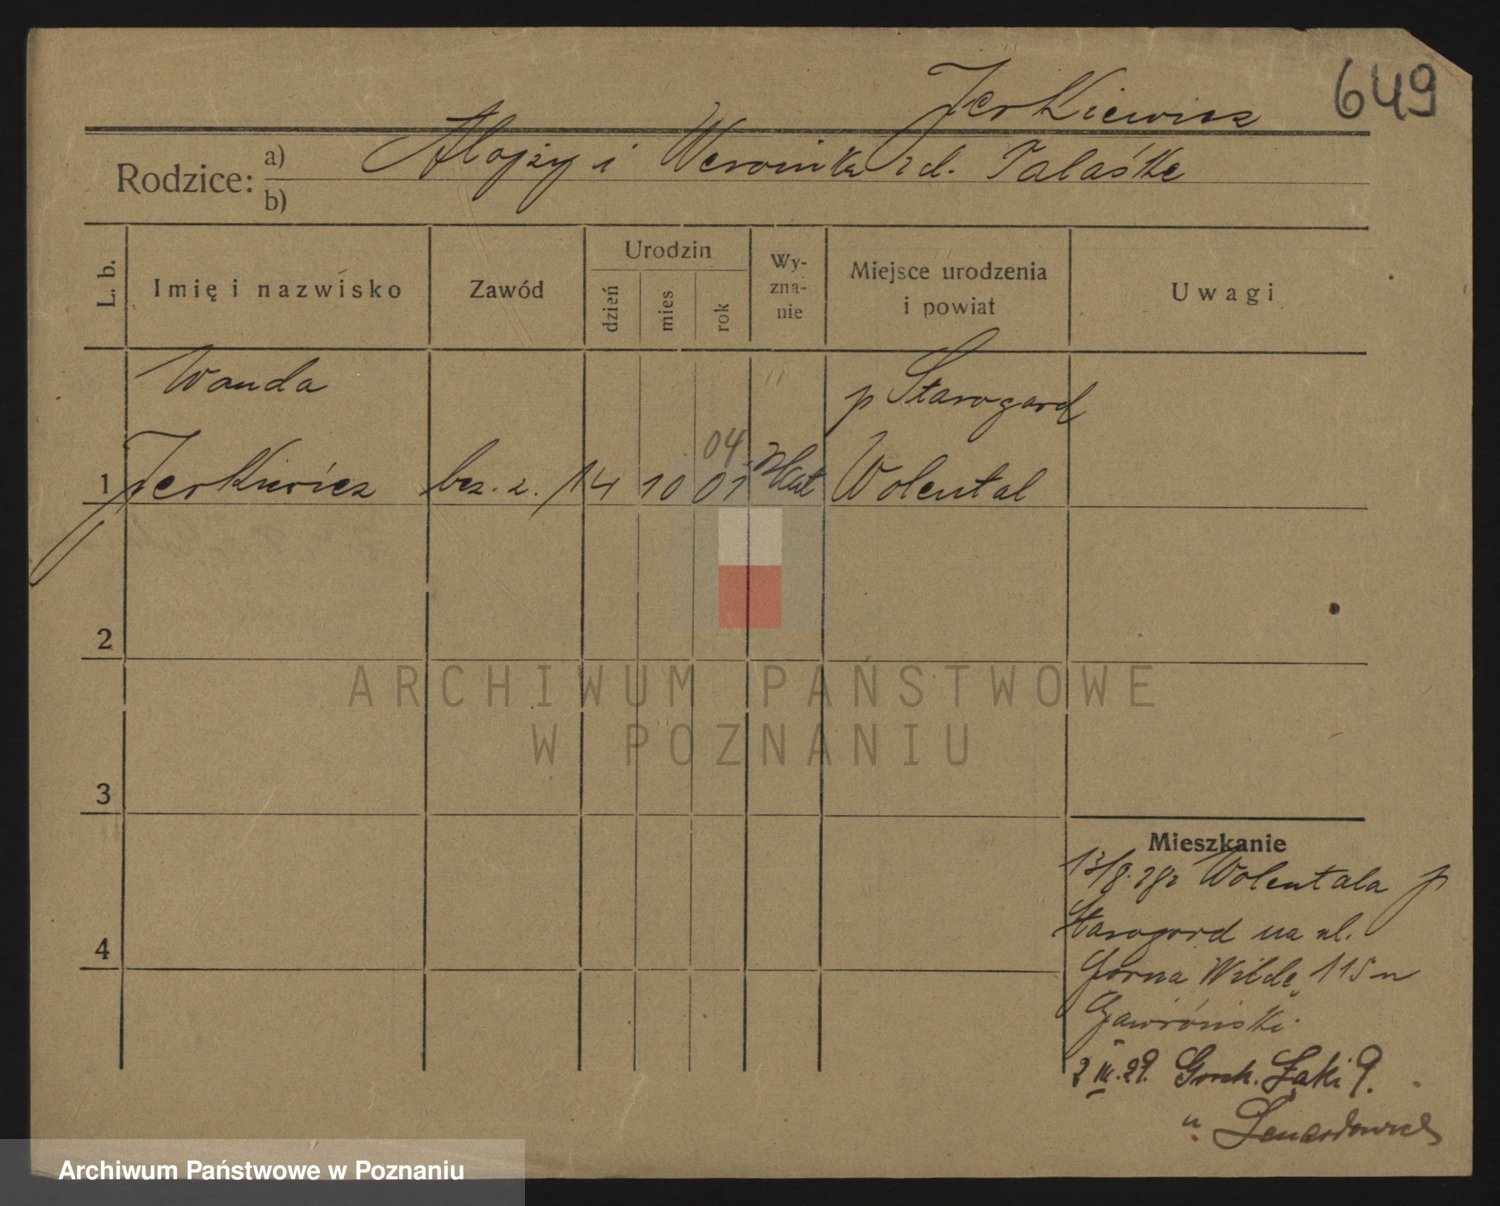 649
Jerkiewicz
Rodzice: a) Alojzy i Weronika zd. Talaśke
b)
L. b.
Imię i nazwisko
Zawód
Urodzin
dzień
mies
rok
Wy-
zna-
nie
Miejsce urodzenia
i powiat
Uwagi
Wanda
p Starogard
04
1 Jerkiewicz bez. z. 14 10 01 Kat Wolental
2
3
4
Mieszkanie
13/8. 28 z Wolentala p
Starogard na ul.
Górna Wildę 115 u
Gawroński
2 III. 29. Groch. Łąki 9.
u Lenartowicz
ARCHIWUM PAŃSTWOWE
W POZNANIU
Archiwum Państwowe w Poznaniu